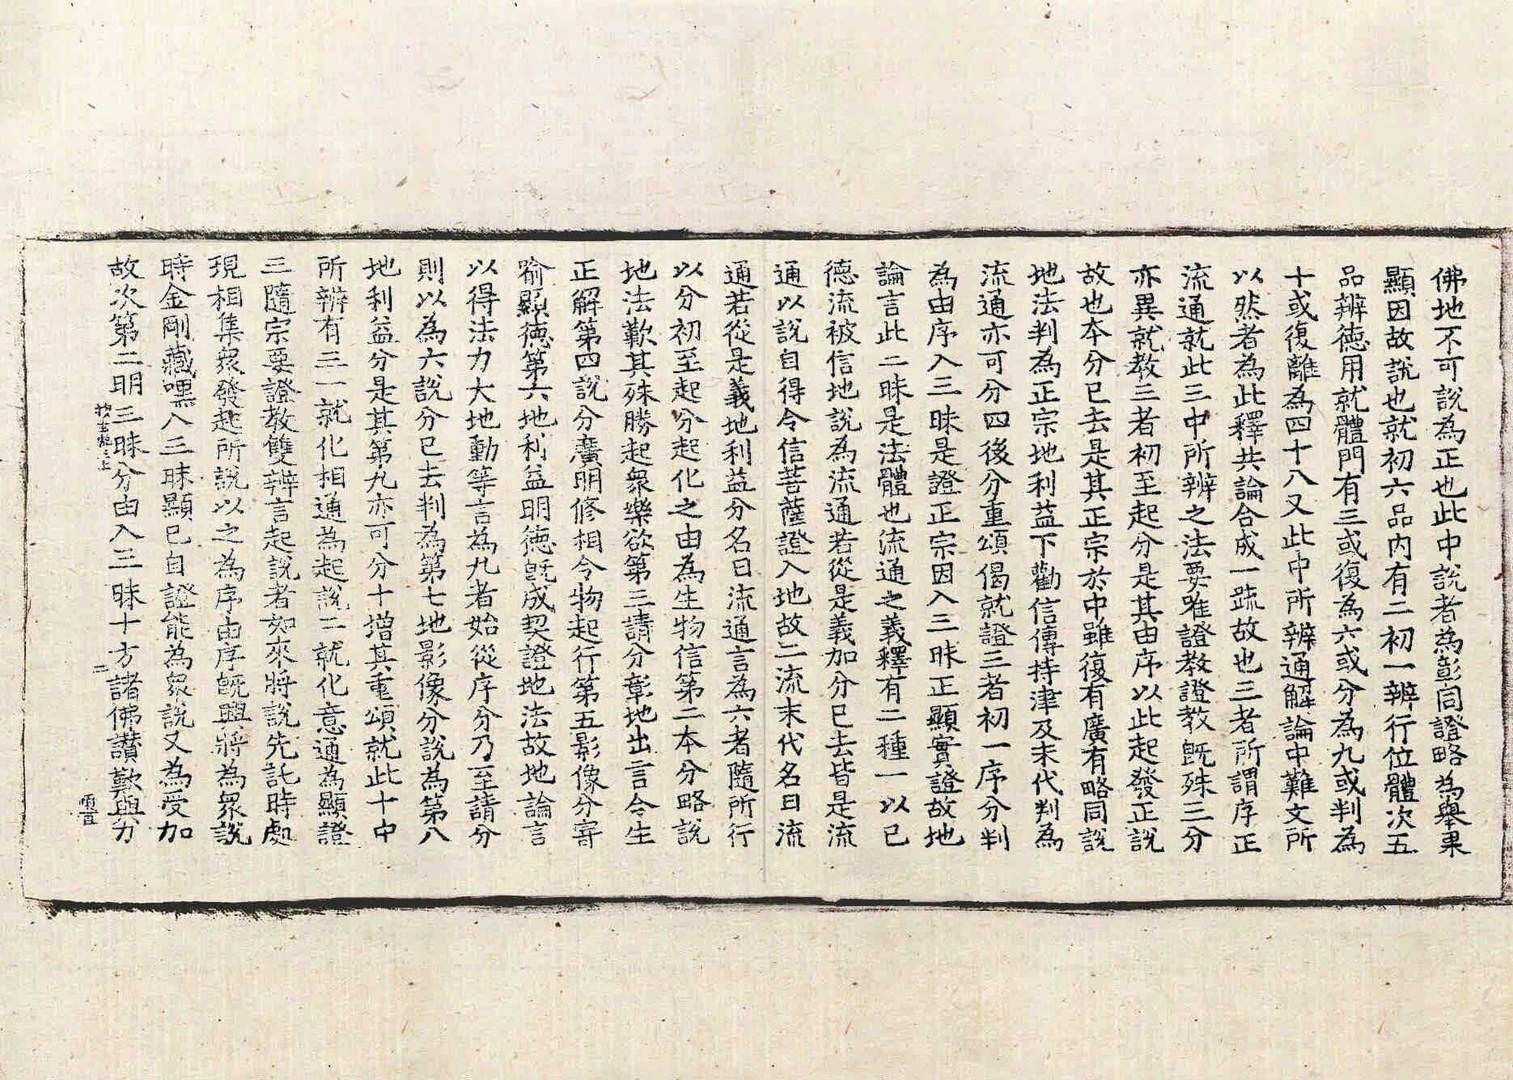 佛地不可說為正也此中說者為彰同證略為舉果
顯因故說也就初六品內有二初一辨行位體次五
品辨德用就體門有三或復為六或分為九或判為
十或復離為四十八又此中所辨通解論中難文所
以然者為此釋共論合成一䟽故也三者所謂序正
流通就此三中所辨之法要唯證教證教旣殊三分
亦異就教三者初至起分是其由序以此起發正說
故也本分已去是其正宗於中雖復有廣有略同說
地法判為正宗地利益下勸信傳持津及末代判為
流通亦可分四後分重頌偈就證三者初一序分判
為由序入三昧是證正宗因入三昧正顯實證故地
論言此二昧是法體也流通之義釋有二種一以已
德流被信地說為流通若從是義加分已去皆是流
通以說自得令信菩薩證入地故二流末代名曰流
通若從是義地利益分名曰流通言為六者隨所行
以分初至起分起化之由為生物信第二本分略說
地法歎其殊勝起衆樂欲第三請分彰地出言令生
正解第四說分廣明修相令物起行第五影像分寄
喻顯德第六地利益明德旣成契證地法故地論言
以得法力大地動等言為九者始從序分乃至請分
則以為六說分已去判為第七地影像分說為第八
地利益分是其第九亦可分十增其重頌就此十中
所辨有三一就化相通為起說二就化意通為顯證
三隨宗要證教雙辨言起說者如來將說先託時處
現相集衆發起所說以之為序由序旣興將為衆說
時金剛藏嘿入三昧顯已自證能為衆說又為受加
故次第二明三昧分由入三昧十方諸佛讚歎與力